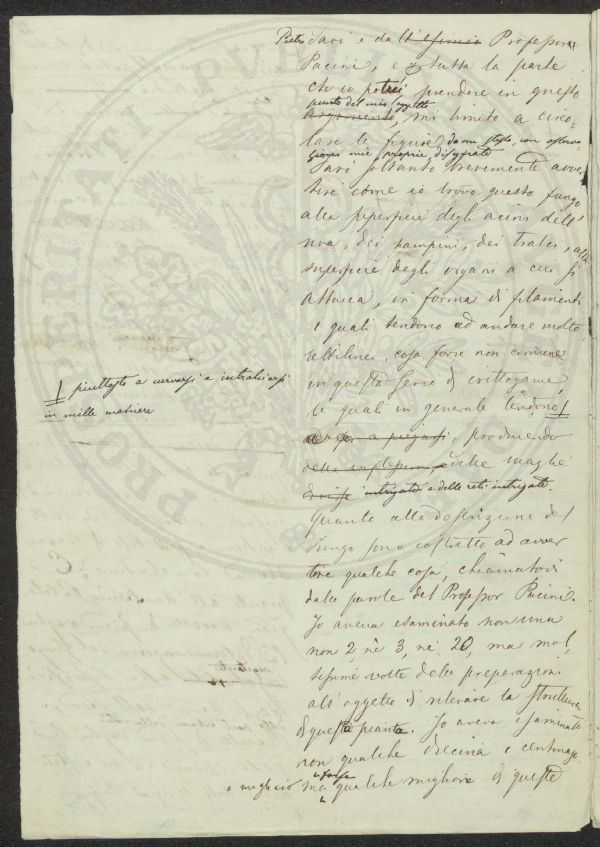 Pietro Savi e dall' esimio Professor
Pacini, e tutta la parte
che io potrei prendere in questo
punto del mio oggetto
argomento, mi limito a circo-
lare le figure da me stesso, con osserva-
zioni mie proprie, disegnate
Farò soltanto brevemente avver-
tire come io trovo questo fungo
alla superficie degli acini dell'
uva, dei pampini, dei tralci, e alla
superficie degli organi a cui si
attacca, in forma di filamenti
i quali tendono ad andare molto
rettilinei, cosa forse non comune
in questa serie di crittogame,
le quali in generale tendono
piuttosto a curvarsi e intralciarsi
in mille maniere
a piegarsi, producendo
delle inflessioni e delle maglie
intrigate e delle reti intrigate.
Quanto alla descrizione del
fungo sono costretto ad avver
tire qualche cosa, chiamatovi
dalle parole del Professor Pacini.
Io aveva esaminato non una
non 2, nè 3, nè 20, ma mol,
tissime volte delle preparazioni
all'oggetto di rilevare la struttura
di questa pianta. Io aveva esaminato
non qualche diecina o centinajo
o migliaio ma forse qualche migliore di queste